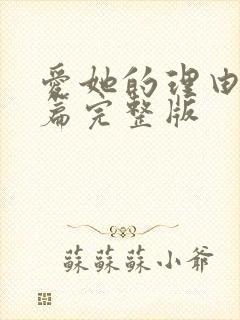 爱她的理由
篇完整版
蘇蘇蘇小爺